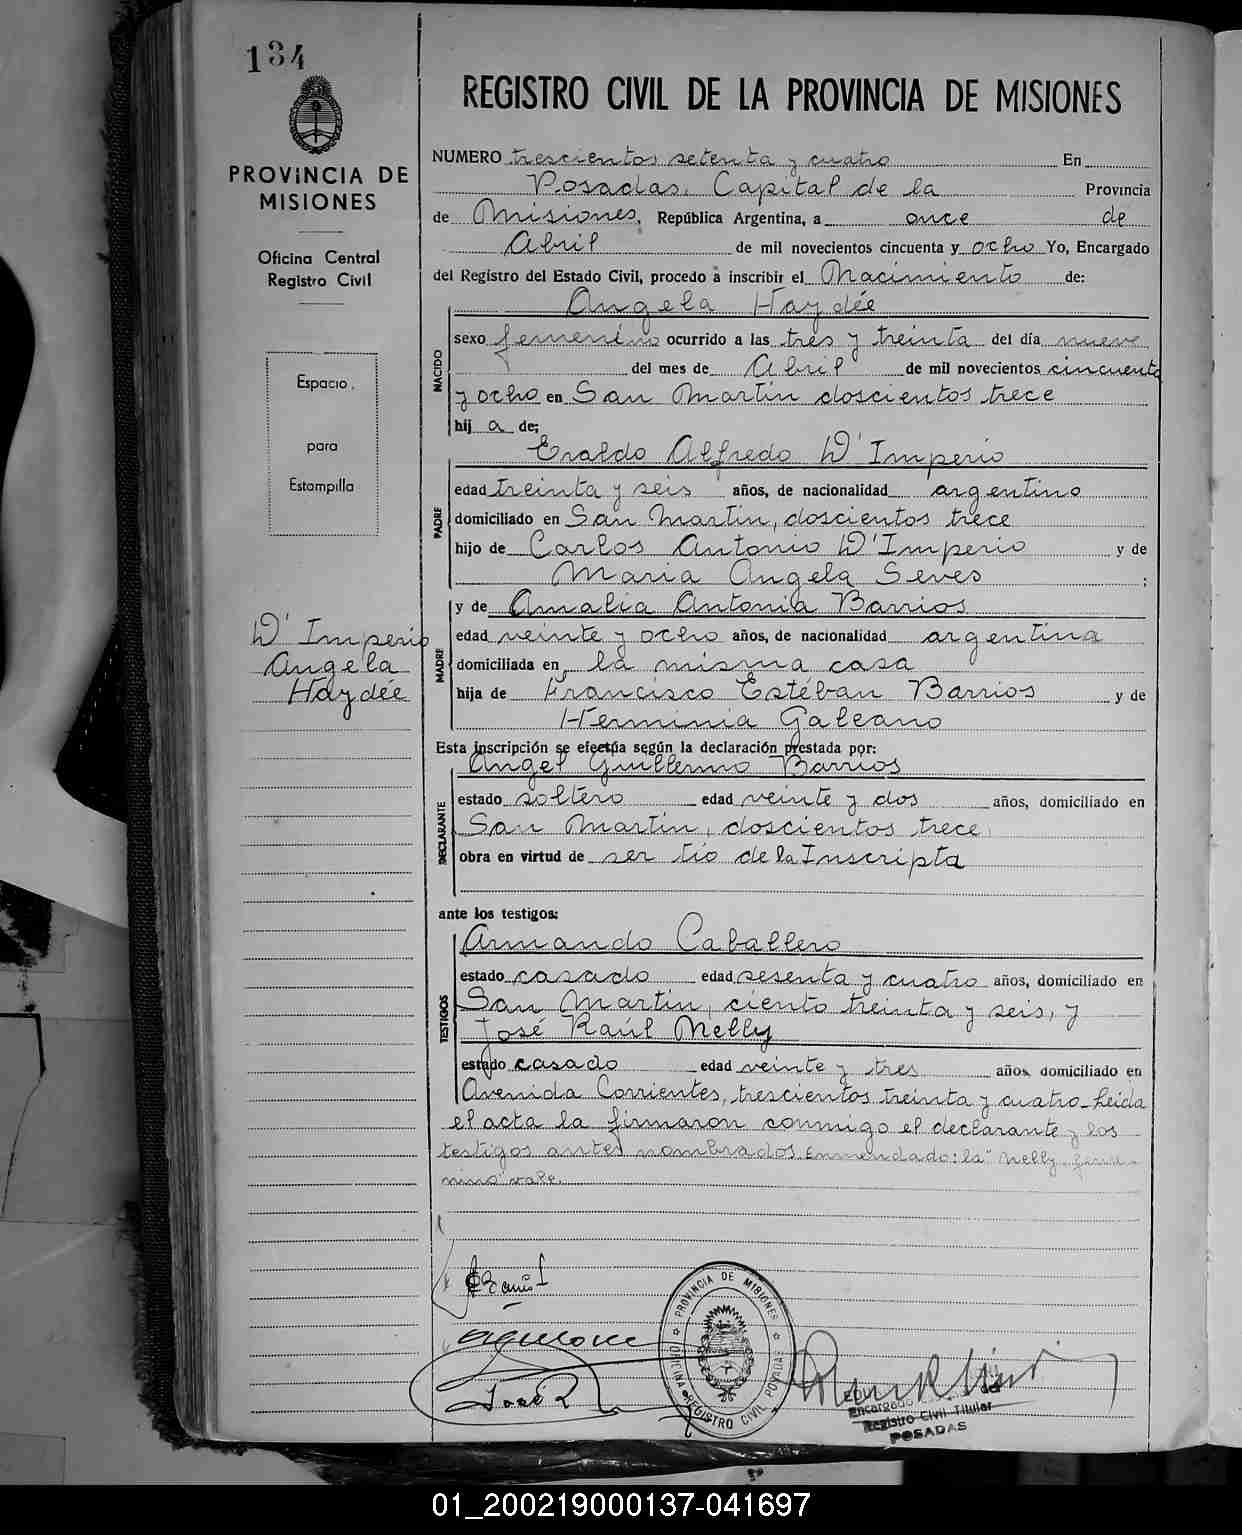 134
PROVINCIA DE
MISIONES
Oficina Central
Registro Civil
Espacio
para
Estampilla
D'Imperio
Angela
Haydée
REGISTRO CIVIL DE LA PROVINCIA DE MISIONES
NUMERO trescientos setenta y cuatro En
Posadas, Capital de la Provincia
de Misiones, República Argentina, a once de
Abril de mil novecientos cincuenta y ocho Yo, Encargado
del Registro del Estado Civil, procedo a inscribir el Nacimiento de:
Angela Haydée
NACIDO
sexo femenino ocurrido a las tres y treinta del día nueve
del mes de Abril de mil novecientos cincuenta
y ocho en San Martin doscientos trece
hij a de:
Eraldo Alfredo D'Imperio
PADRE
edad treinta y seis años, de nacionalidad argentino
domiciliado en San Martin, doscientos trece
hijo de Carlos Antonio D'Imperio y de
Maria Angela Seves ;
MADRE
y de Amalia Antonia Barrios
edad veinte y ocho años, de nacionalidad argentina
domiciliada en la misma casa
hija de Francisco Estéban Barrios y de
Herminia Galeano
Esta inscripción se efectúa según la declaración prestada por:
Angel Guillermo Barrios
DECLARANTE
estado soltero edad veinte y dos años, domiciliado en
San Martin, doscientos trece
obra en virtud de ser tío de la Inscripta
ante los testigos:
Armando Caballero
TESTIGOS
estado casado edad sesenta y cuatro años, domiciliado en
San Martin, ciento treinta y seis, y
José Raúl Melly
estado casado edad veinte y tres años, domiciliado en
Avenida Corrientes, trescientos treinta y cuatro. Leida
el acta la firmaron conmigo el declarante y los
testigos antes nombrados. Enmendado: la" Melly. feme-
nino" vale.
José R
PROVINCIA DE MISIONES
OFICINA REGISTRO CIVIL POSADAS
Encargado del
Registro Civil Titular
POSADAS
01_200219000137-041697